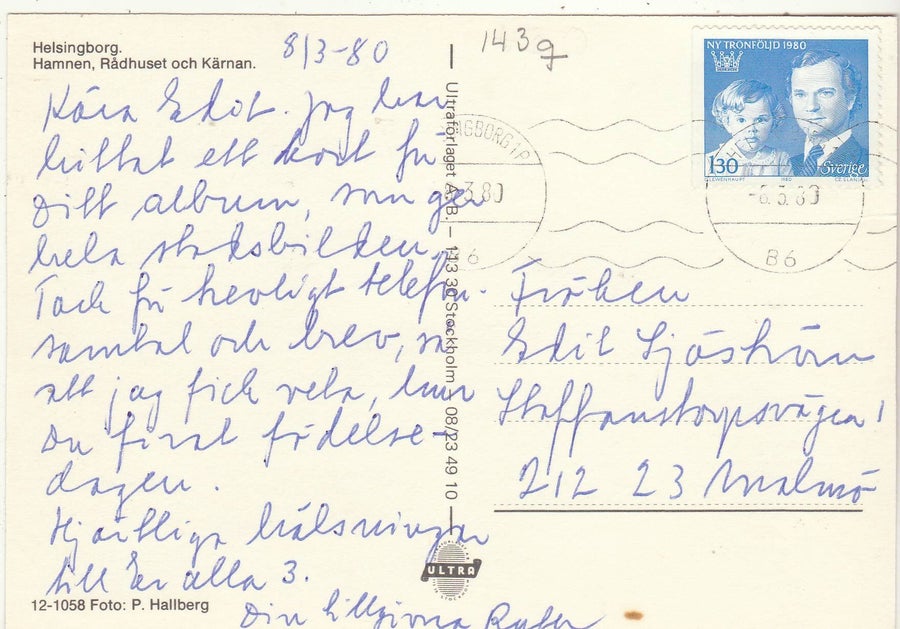 Helsingborg.
Hamnen, Rådhuset och Kärnan.
8/3-80
1439
Kära Edit. Jag har
hittat ett kort för
Ditt album, som ger
hela stadsbilden.
Tack för trevligt telefon-
samtal och brev, så
att jag fick veta, hur
Du firat födelse-
dagen.
Hjärtliga hälsningar
till Er alla 3.
Din tillgivna
12-1058 Foto: P. Hallberg
Ultraförlaget A.B. – 113 30 Stockholm – 08/23 49 10
ULTRA
NY TRONFÖLJD 1980
130
Sverige
1980
-8.3.80
B6
Fröken
Edit Sjöström
Staffanstorpsvägen 1
212 23 Malmö